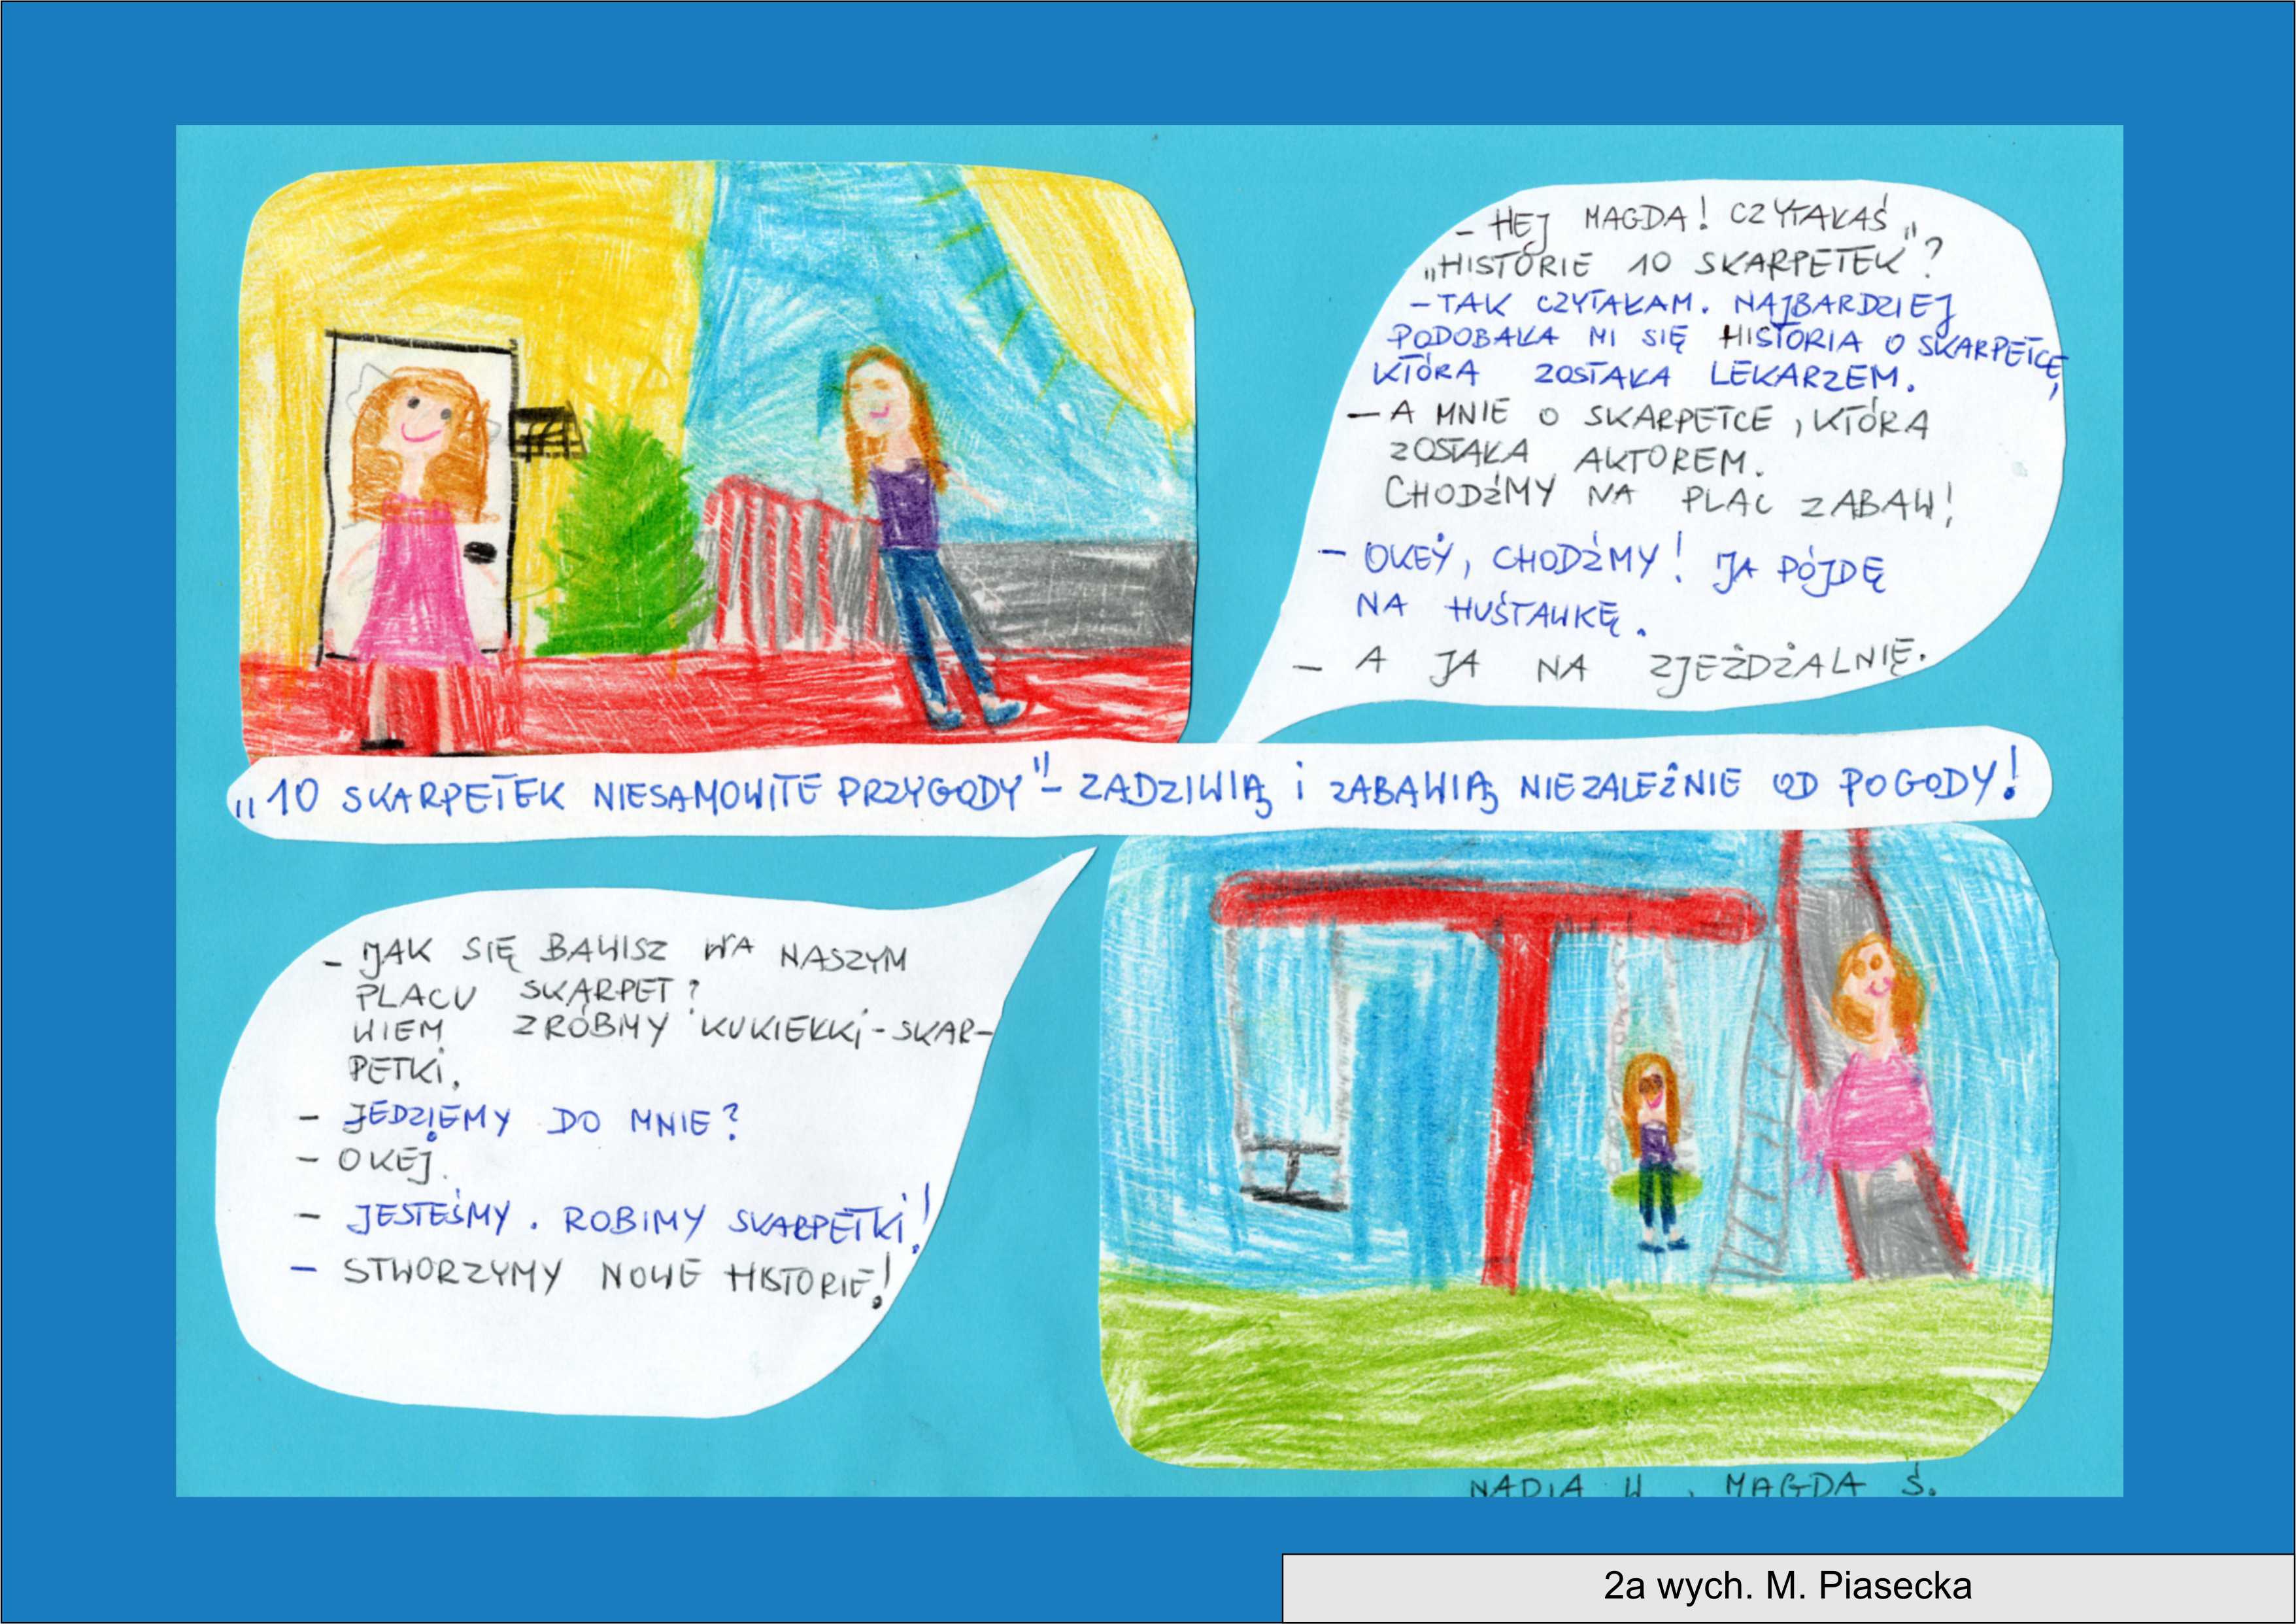 - HEJ MAGDA! CZYTAŁAŚ
„HISTORIE 10 SKARPETEK"?
- TAK CZYTAŁAM. NAJBARDZIEJ
PODOBAŁA MI SIĘ HISTORIA O SKARPETCE,
KTÓRA ZOSTAŁA LEKARZEM.
- A MNIE O SKARPETCE, KTÓRA
ZOSTAŁA AKTOREM.
CHODŹMY NA PLAC ZABAW!
- OKEY, CHODŹMY! JA PÓJDĘ
NA HUŚTAWKĘ.
- A JA NA ZJEŻDŻALNIĘ.
„10 SKARPETEK NIESAMOWITE PRZYGODY" - ZADZIWIĄ i ZABAWIĄ NIEZALEŻNIE OD POGODY!
- JAK SIĘ BAWISZ NA NASZYM
PLACU SKARPET?
WIEM ZRÓBMY KUKIEŁKI-SKAR-
PETKI.
- JEDZIEMY DO MNIE?
- OKEJ.
- JESTEŚMY. ROBIMY SKARPETKI!
- STWORZYMY NOWE HISTORIE!
NADIA W., MAGDA Ś.
2a wych. M. Piasecka